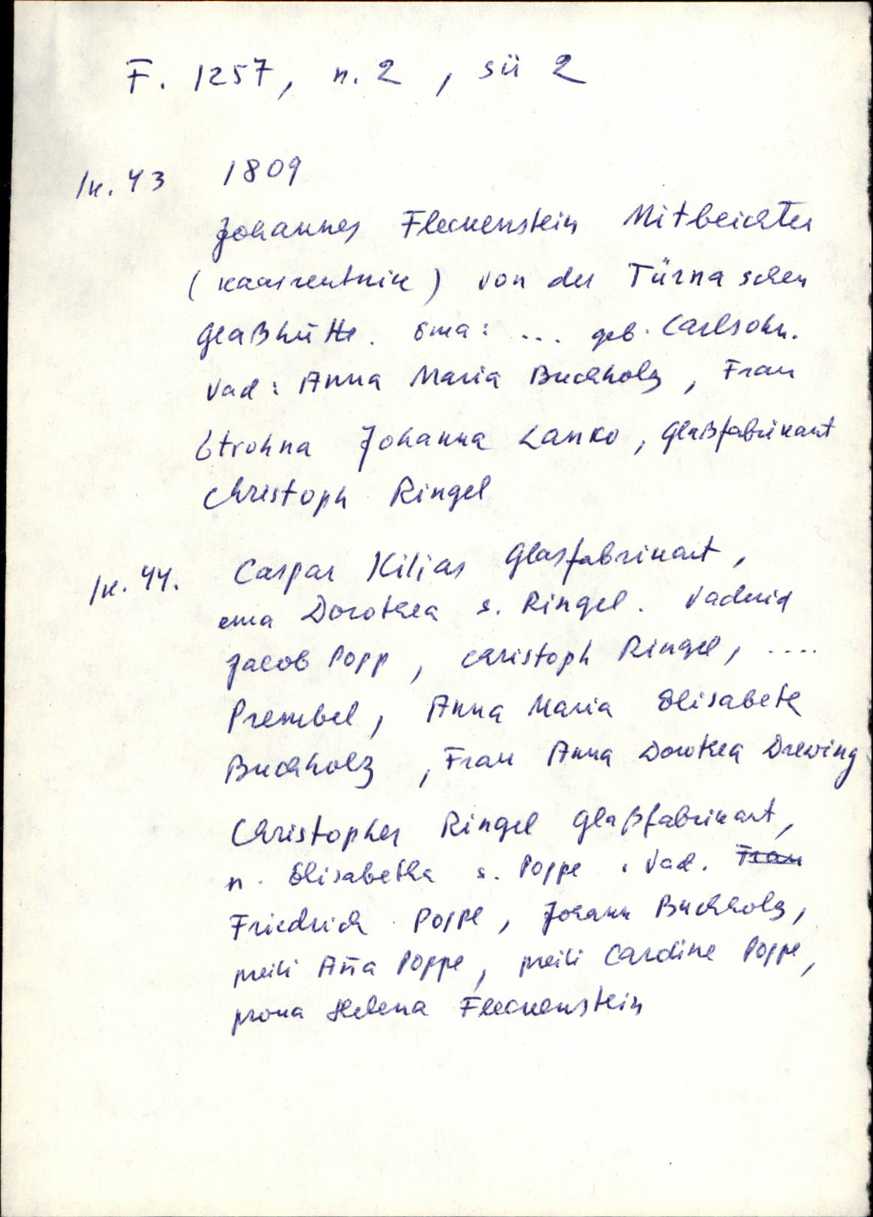 F. 1257, n. 2, sü 2
lk. 43 1809
Johannes Fleckenstein Mitbeichter
(kaasrentnik) von der Türna schen
Glaßhütte. Ema: ... geb. Carlsohn.
Vad: Anna Maria Buchholz, Frau
Strohna Johanna Lanko, Glaßfabrikant
Christoph Ringel
lk. 44. Caspar Kilias Glasfabrikant,
ema Dorothea s. Ringel. Vaderid
Jacob Popp, Christoph Ringel, ....
Prembel, Anna Maria Elisabeth
Buchholz, Frau Anna Dorothea Drewing
Christopher Ringel Glaßfabrikant,
n. Elisabetha s. Poppe. Vad. Frau
Friedrich Poppe, Johann Buchholz,
preili Aña Poppe, preili Caroline Poppe,
proua Helena Fleckenstein